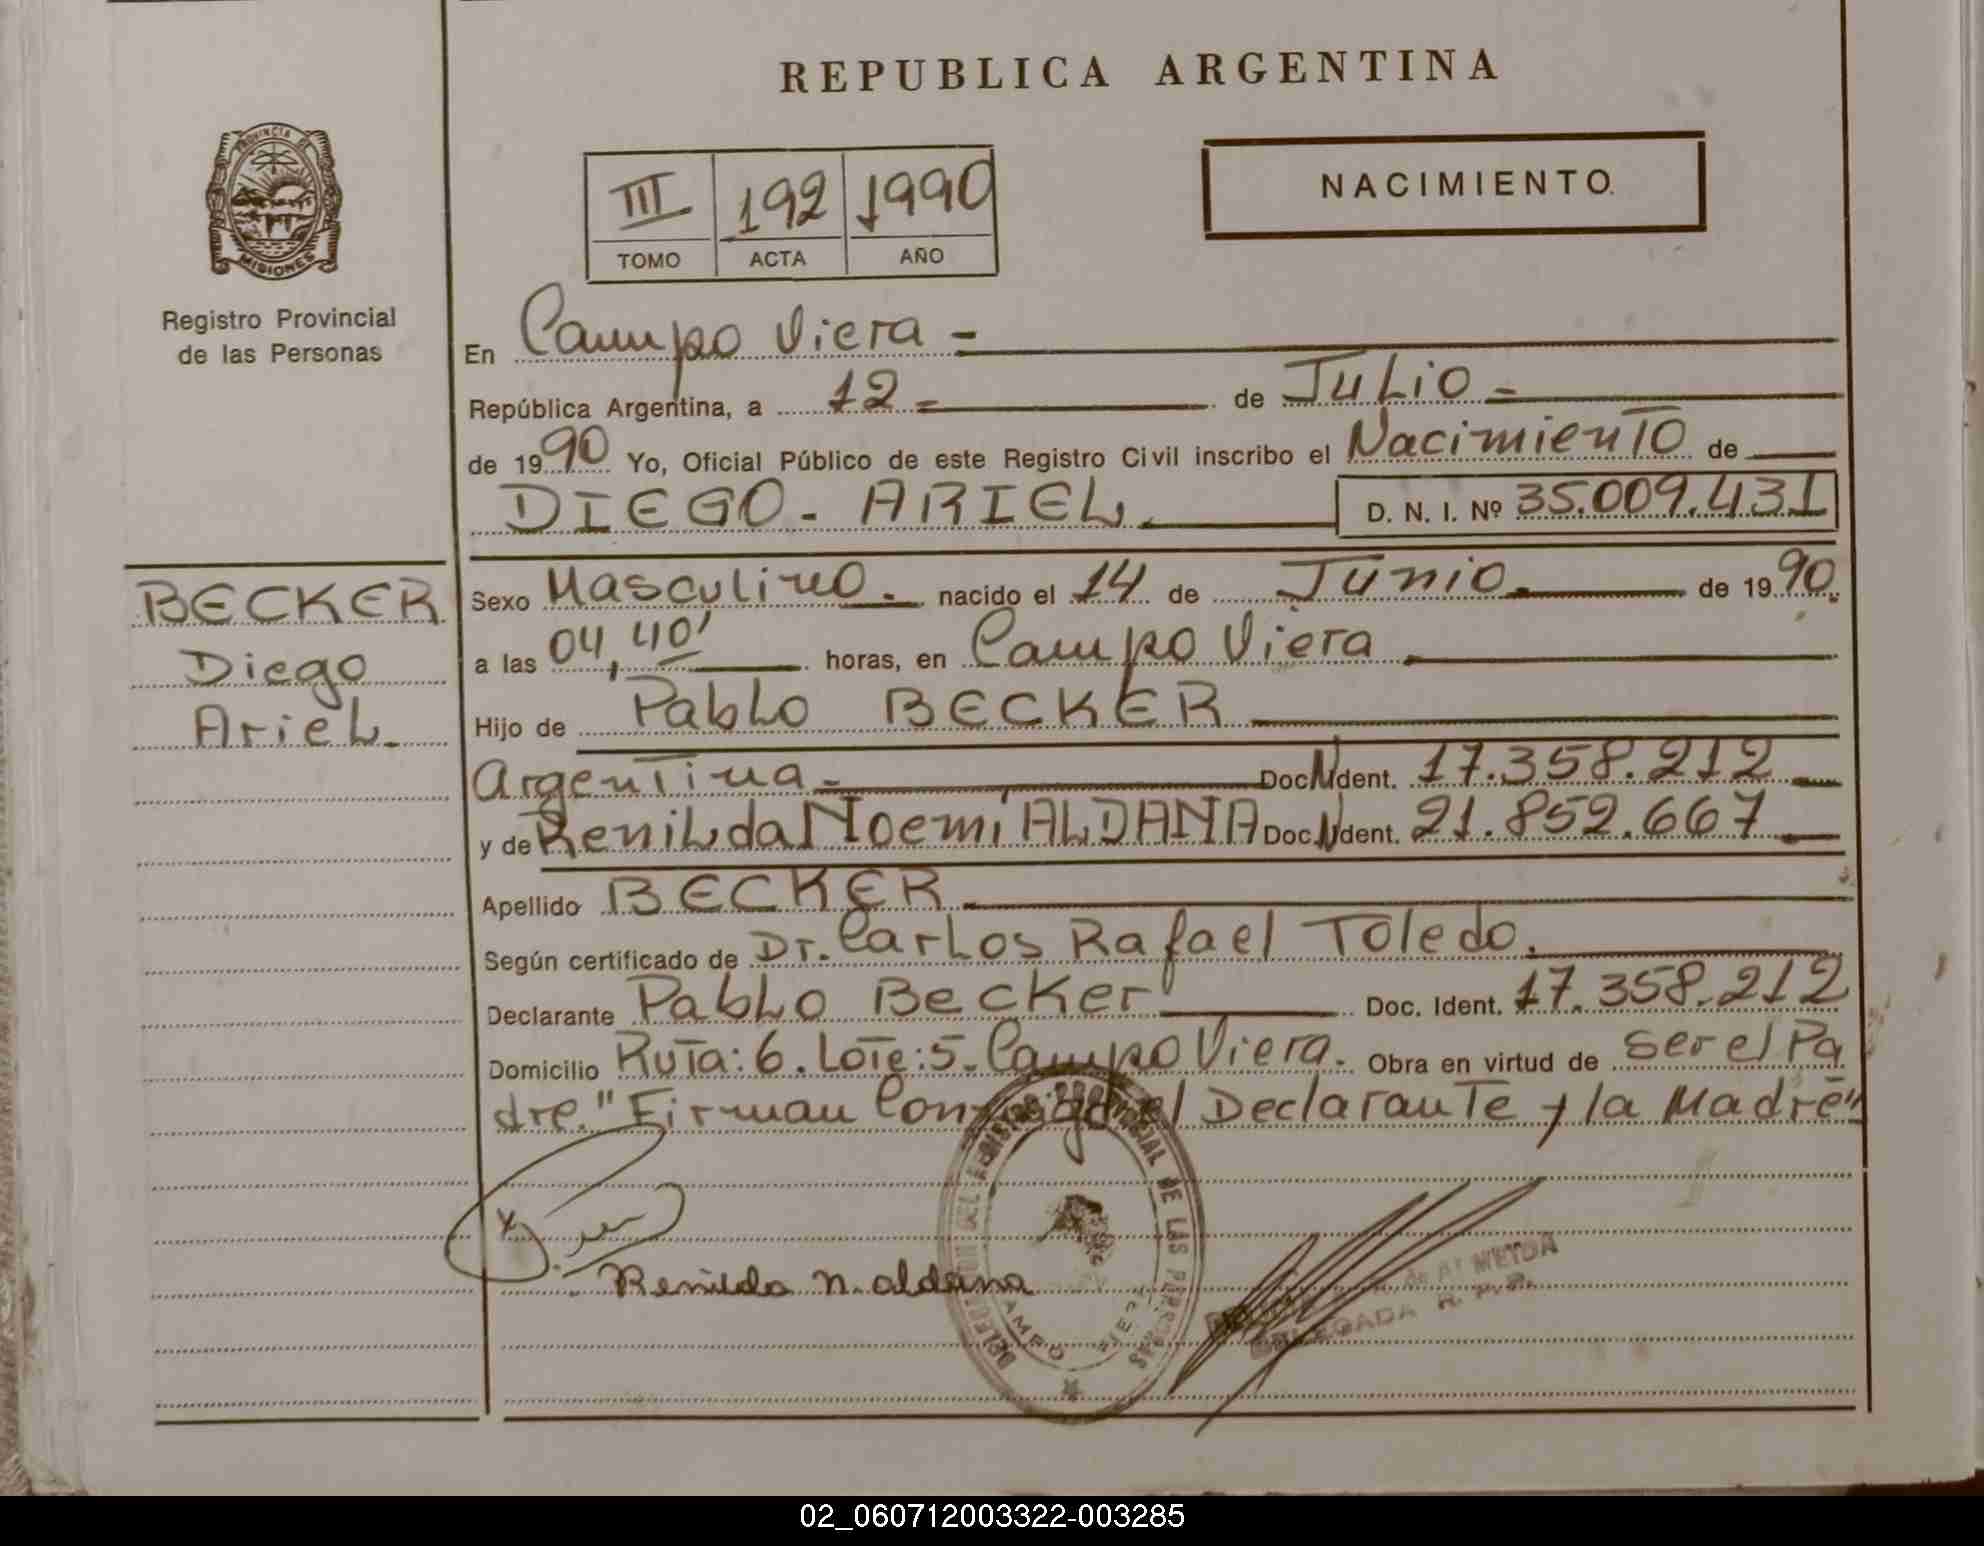 REPUBLICA ARGENTINA
PROVINCIA DE
MISIONES
Registro Provincial
de las Personas
III 192 1990
TOMO ACTA AÑO
NACIMIENTO
En Campo Viera -
República Argentina, a 12 - de Julio -
de 1990 Yo, Oficial Público de este Registro Civil inscribo el Nacimiento de
DIEGO - ARIEL D. N. I. Nº 35.009.431
BECKER
Diego
Ariel
Sexo Masculino. nacido el 14 de Junio. de 1990.
a las 04,40' horas, en Campo Viera
Hijo de Pablo BECKER
Argentina - Doc N Ident. 17.358.212
y de Renilda Noemi ALDANA Doc. N Ident. 21.852.667
Apellido BECKER
Según certificado de Dr. Carlos Rafael Toledo.
Declarante Pablo Becker Doc. Ident. 17.358.212
Domicilio Ruta: 6. Lote: 5. Campo Viera. Obra en virtud de ser el Pa
dre. "Firman Conmigo el Declarante y la Madre"
Renilda N. Aldana
DEL REGISTRO PROVINCIAL DE LAS PERSONAS
VIERA
ALMEIDA
DELEGADA R. P. P.
02_060712003322-003285